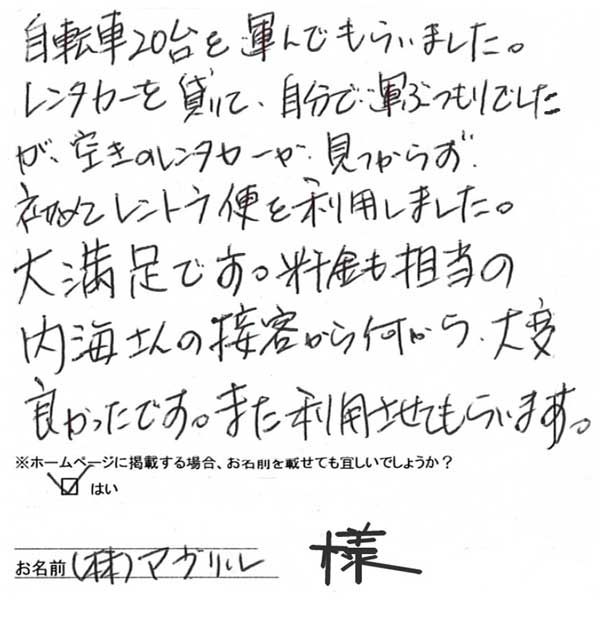 自転車20台を運んでもらいました。
レンタカーを貸りて、自分で運ぶつもりでした
が、空きのレンタカーが見つからず、
初めてレントラ便を利用しました。
大満足です。料金も担当の
内海さんの接客から何から、大変
良かったです。また利用させてもらいます。
※ホームページに掲載する場合、お名前を載せても宜しいでしょうか？
はい
お名前 (株)マグリル 様